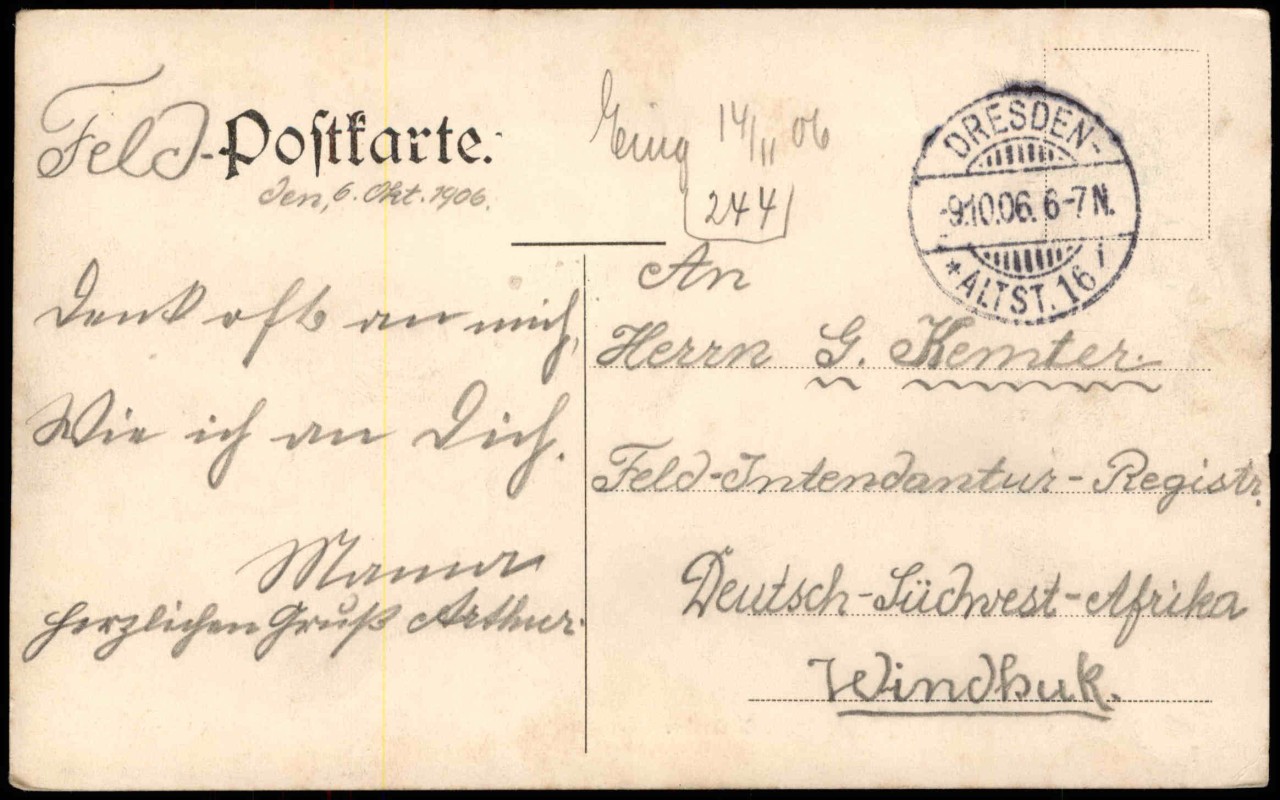 Feld-Postkarte.
Den, 6. Okt. 1906.
Eing 14/11 06
244
DRESDEN-
-9.10.06. 6-7 N.
* ALTST. 16 i
Denk oft an mich,
Wie ich an Dich.
Mama
herzlichen Gruß Arthur.
An
Herrn G. Kemter.
Feld-Intendantur-Registr.
Deutsch-Südwest-Afrika
Windhuk.